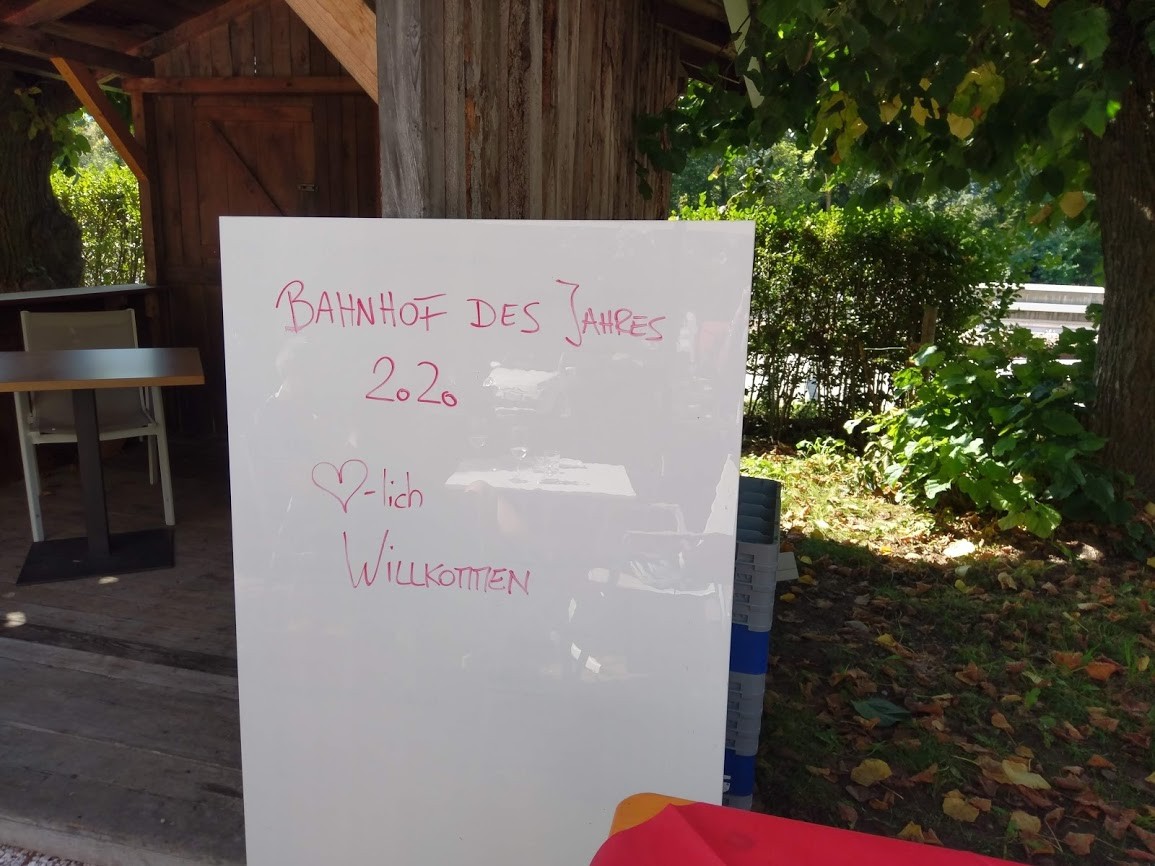 BAHNHOF DES JAHRES
2020
♡-lich
WILLKOMMEN